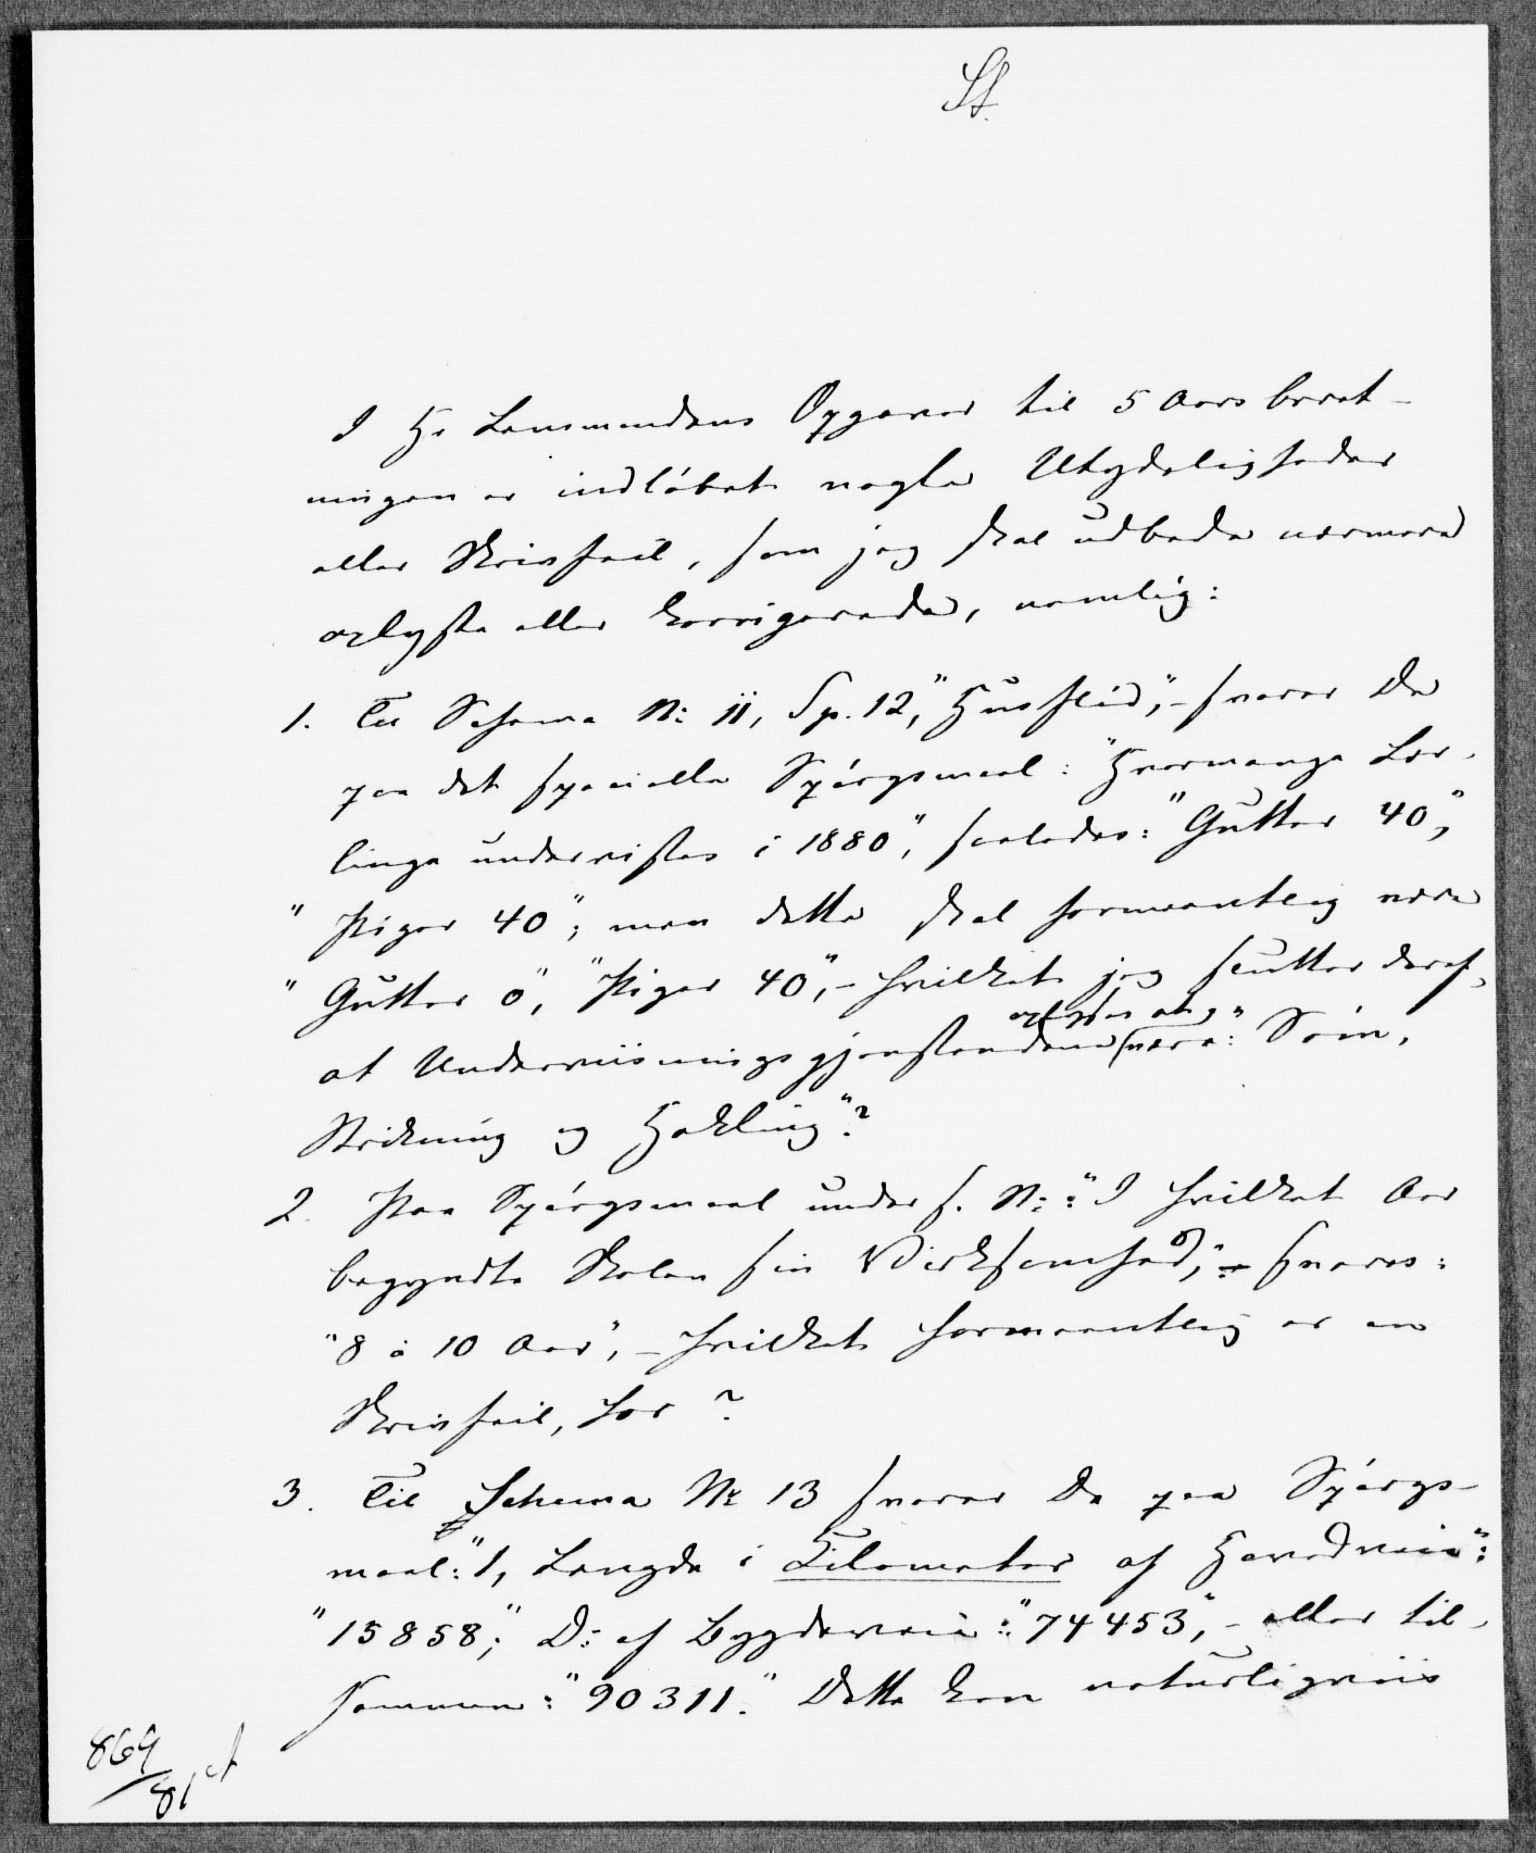 St.
I Hr Lensmandens Opgaver til 5 Aars beret-
ningen er indløbet nogle Utydeligheder
eller Skrivfeil, som jeg skal udbede nærmere
oplyste eller korrigerede, nemlig:
1. Til Schema No 11, Sp. 12, "Husflid", - svarer De
paa det specielle Spørgsmaal: "Hvormange Lær-
linge undervistes i 1880", saaledes: "Gutter 40",
" Piger 40"; men dette skal formeentlig være
" Gutter 0", "Piger 40", - hvilket jeg slutter deraf,
oplyses at
at Underviisningsgjenstandene være: "Søm,
Strikning og Hekling"?
2. Paa Spørgsmaal under s. No: "I hvilket Aar
begyndte Skolen sin Virksomhed", - svares:
"8 à 10 Aar", - hvilket formeentlig er en
Skrivfeil, for ?
3. Til Schema No 13 svarer De paa Spørgs-
maal: "1, Længde i Kilometer af Hovedveie":
"15858", Do af Bygdeveie: "74453", - eller til-
sammen: "90311." Dette kan naturligviis
869/81 A